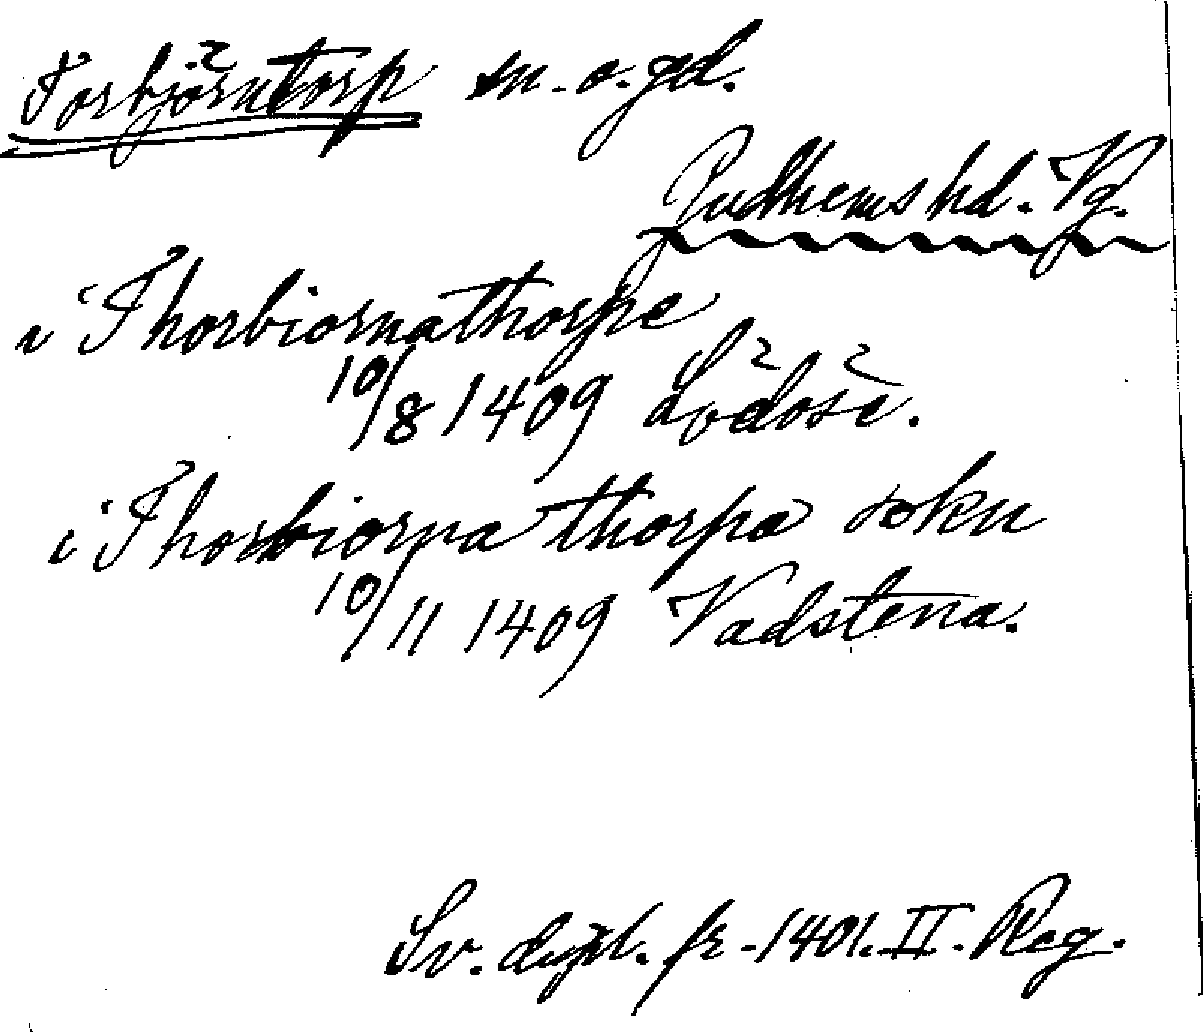 Torbjörntorp sn. o. gd.
Gudhems hd. Vg.
i Thorbiornathorpe
10/8 1409 Lödöse.
i Thorbiorna thorpa soku
10/11 1409 Vadstena.
Sv. dipl. fr. 1401. II. Reg.